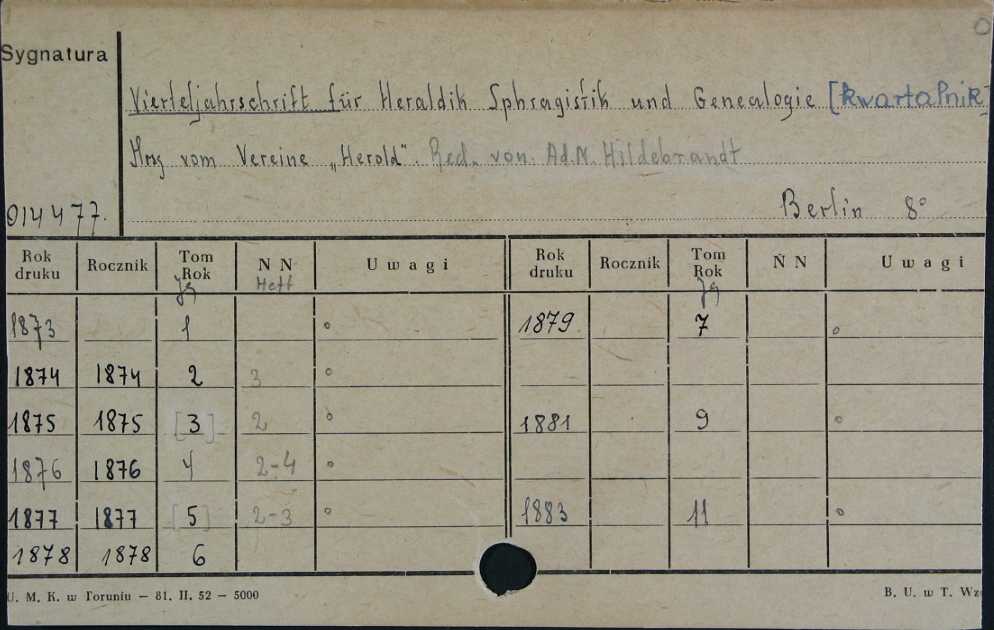 Sygnatura
Vierteljahrschrift für Heraldik Sphragistik und Genealogie [kwartalnik]
Hrsg vom Vereine „Herold". Red. von. Ad. M. Hildebrandt
014477. Berlin 8°
Rok druku Rocznik Tom Rok Jg N N Heft Uwagi Rok druku Rocznik Tom Rok Jg N N Uwagi
1873 1 ° 1879 7 °
1874 1874 2 3 °
1875 1875 [3] 2 ° 1881 9 °
1876 1876 4 2-4 °
1877 1877 [5] 2-3 ° 1883 11 °
1878 1878 6
U. M. K. w Toruniu — 81. II. 52 — 5000 B. U. w T.